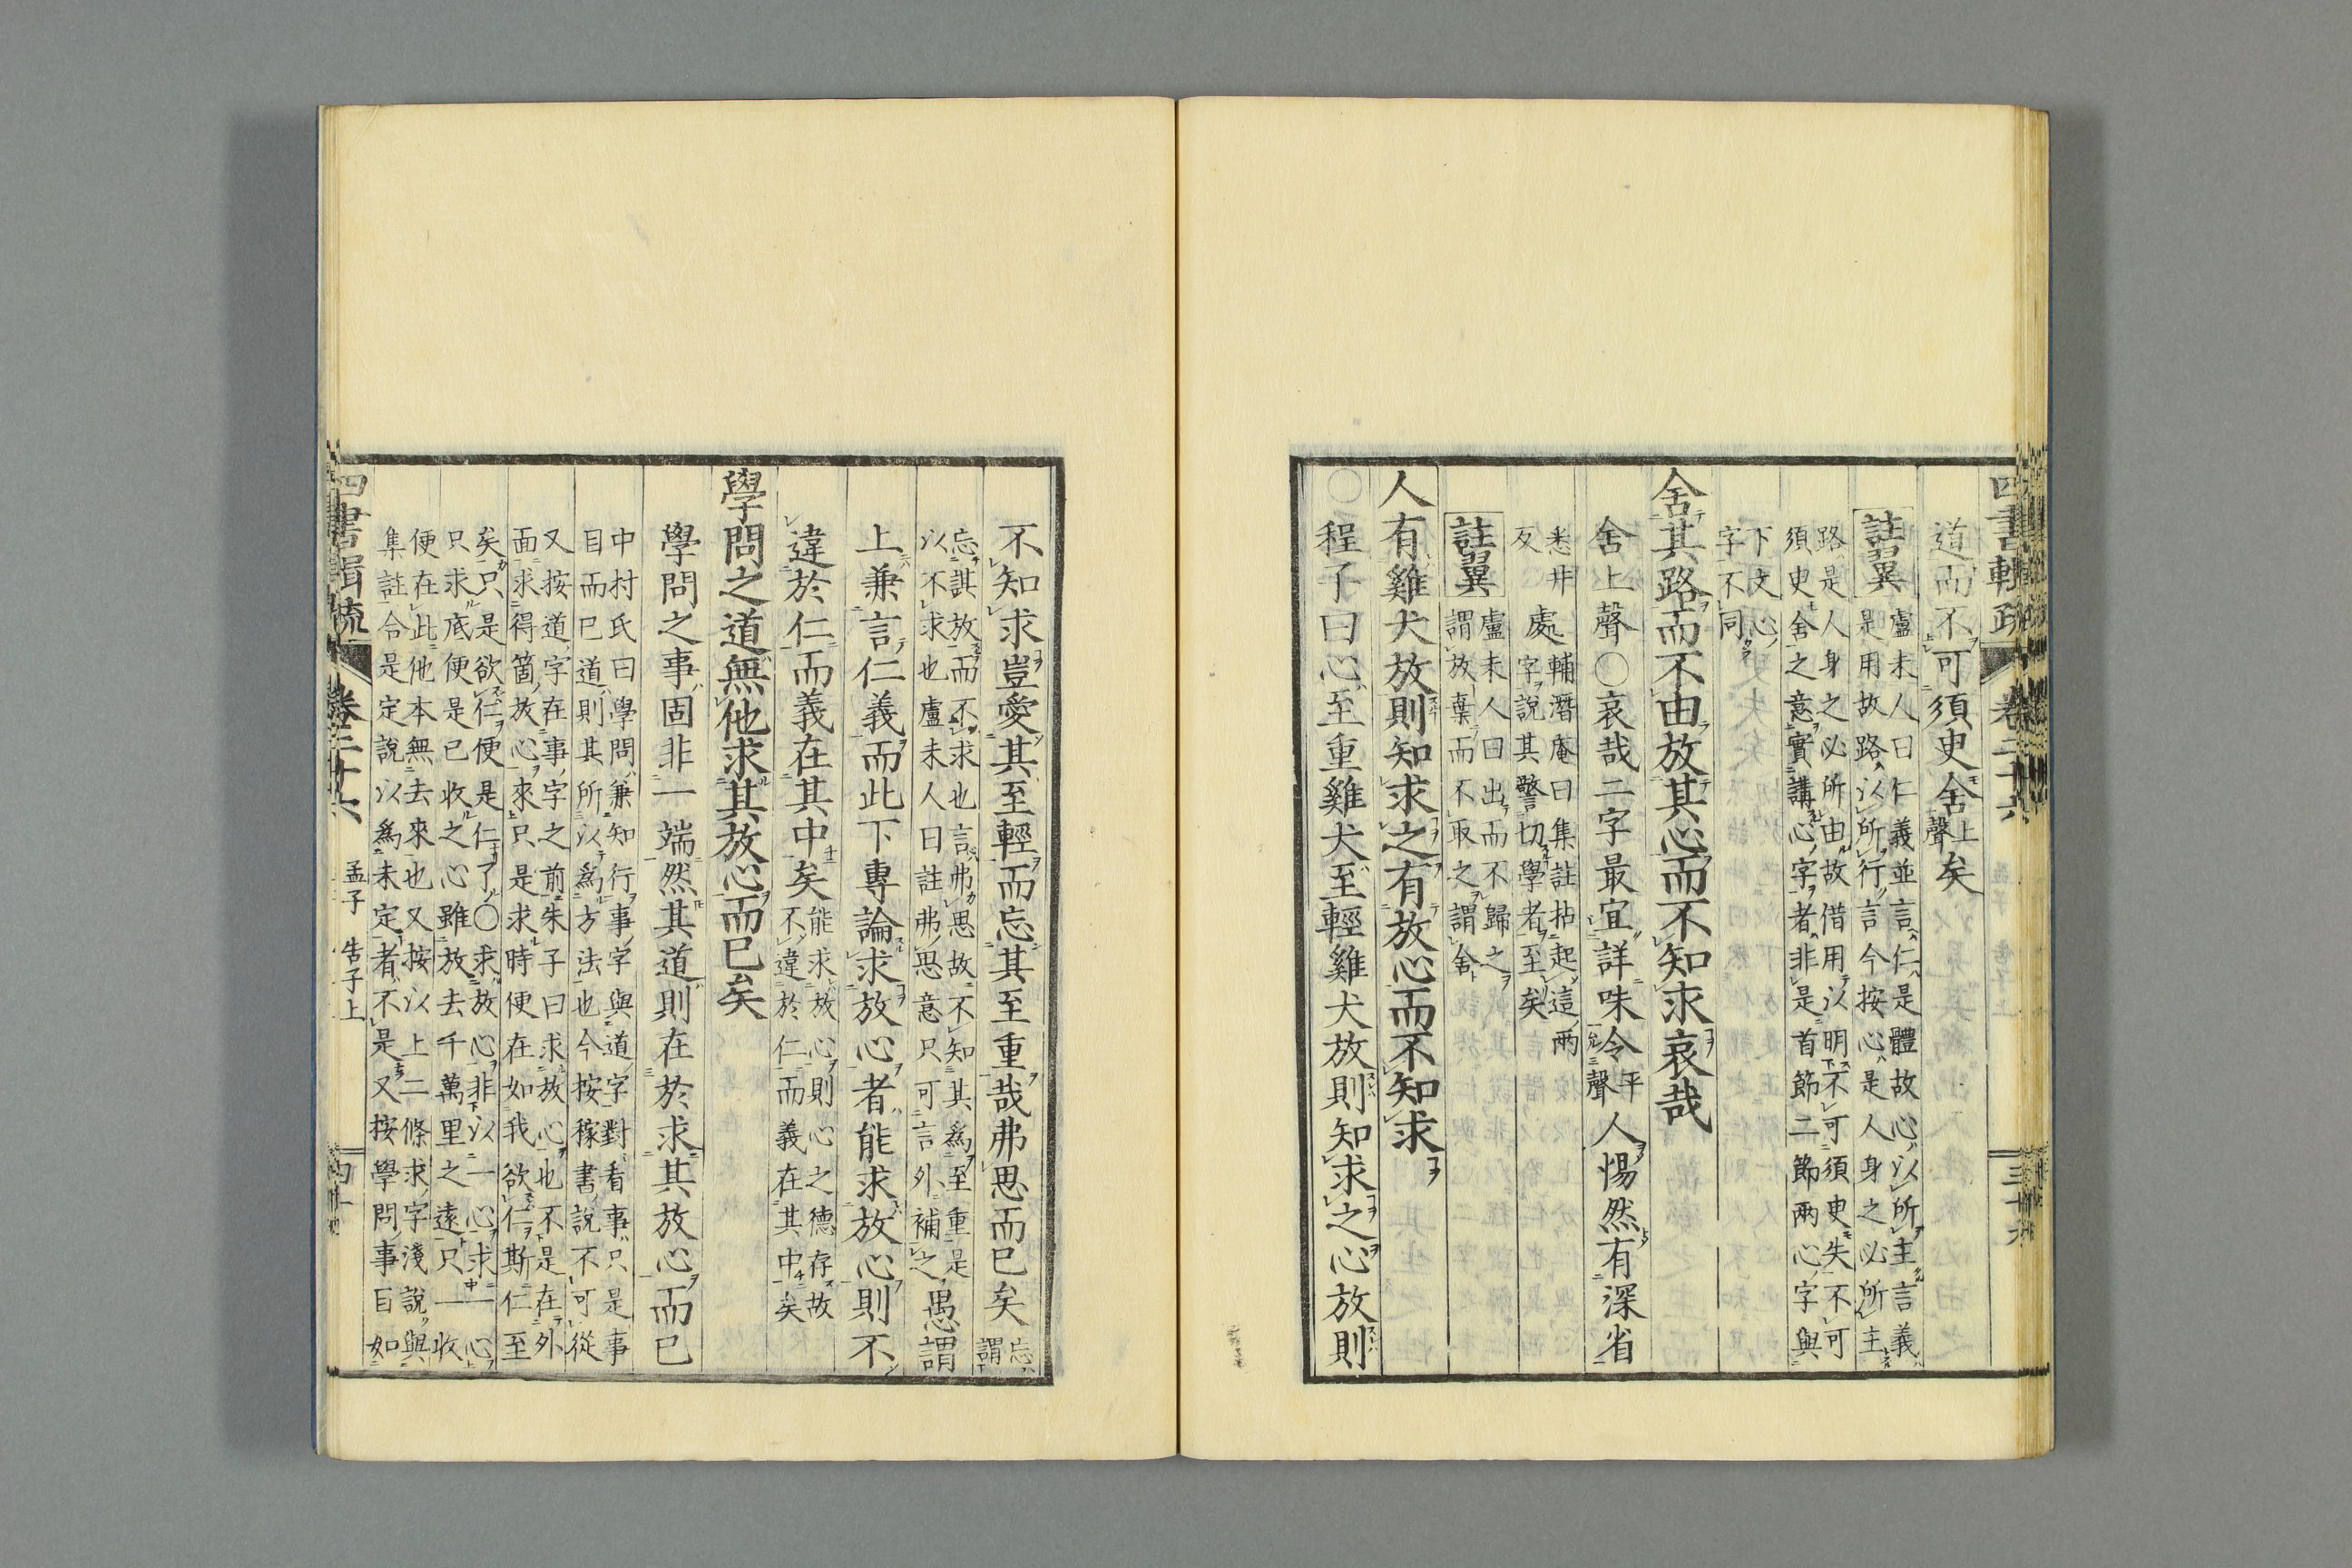 四書輯疏 卷二十六 三十九
道而不可須臾舍上聲矣
註翼
盧未人曰仁義並言仁是體故心以所主言義
是用故路以所行言今按心是人身之必所主
路是人身之必所由故借用以明不可須臾失不可
須臾舍之意實講心字者非是首節二節兩心字與
下文心
字不同
舍其路而不由放其心而不知求哀哉
舍上聲〇哀哉二字最宜詳味令平聲人惕然有深省
悉井反處
輔潛庵曰集註拈起這兩
字說其警切學者至矣
註翼
盧未人曰出而不歸之
謂放棄而不取之謂舍
人有雞犬放則知求之有放心而不知求
〇程子曰心至重雞犬至輕雞犬放則知求之心放則
不知求豈愛其至輕而忘其至重哉弗思而已矣忘謂
忘諆放而不求也言弗思故不知其爲至重是
以不求也盧未人曰註弗思意只可言外補之愚謂
上兼言仁義而此下專論求放心者能求放心則不
違於仁而義在其中矣
能求放心則心之德存故
不違於仁而義在其中矣
學問之道無他求其放心而已矣
學問之事固非一端然其道則在於求其放心而已
中村氏曰學問兼知行事字與道字對看事只是事
目而已道則其所以爲方法也今按稼書說不可從
又按道字在事字之前朱子曰求放心也不是在外
面求得箇放心來只是求時便在如我欲仁斯仁至
矣只是欲仁便是仁了〇求放心非以一心求一心
只求底便是已收之心雖放去千萬里之遠只一收
便在此他本無去來也又按以上二條求字淺說與
集註合是定說以爲未定者不是又按學問事目如
四書輯疏 卷二十六 孟子 告子上 四十